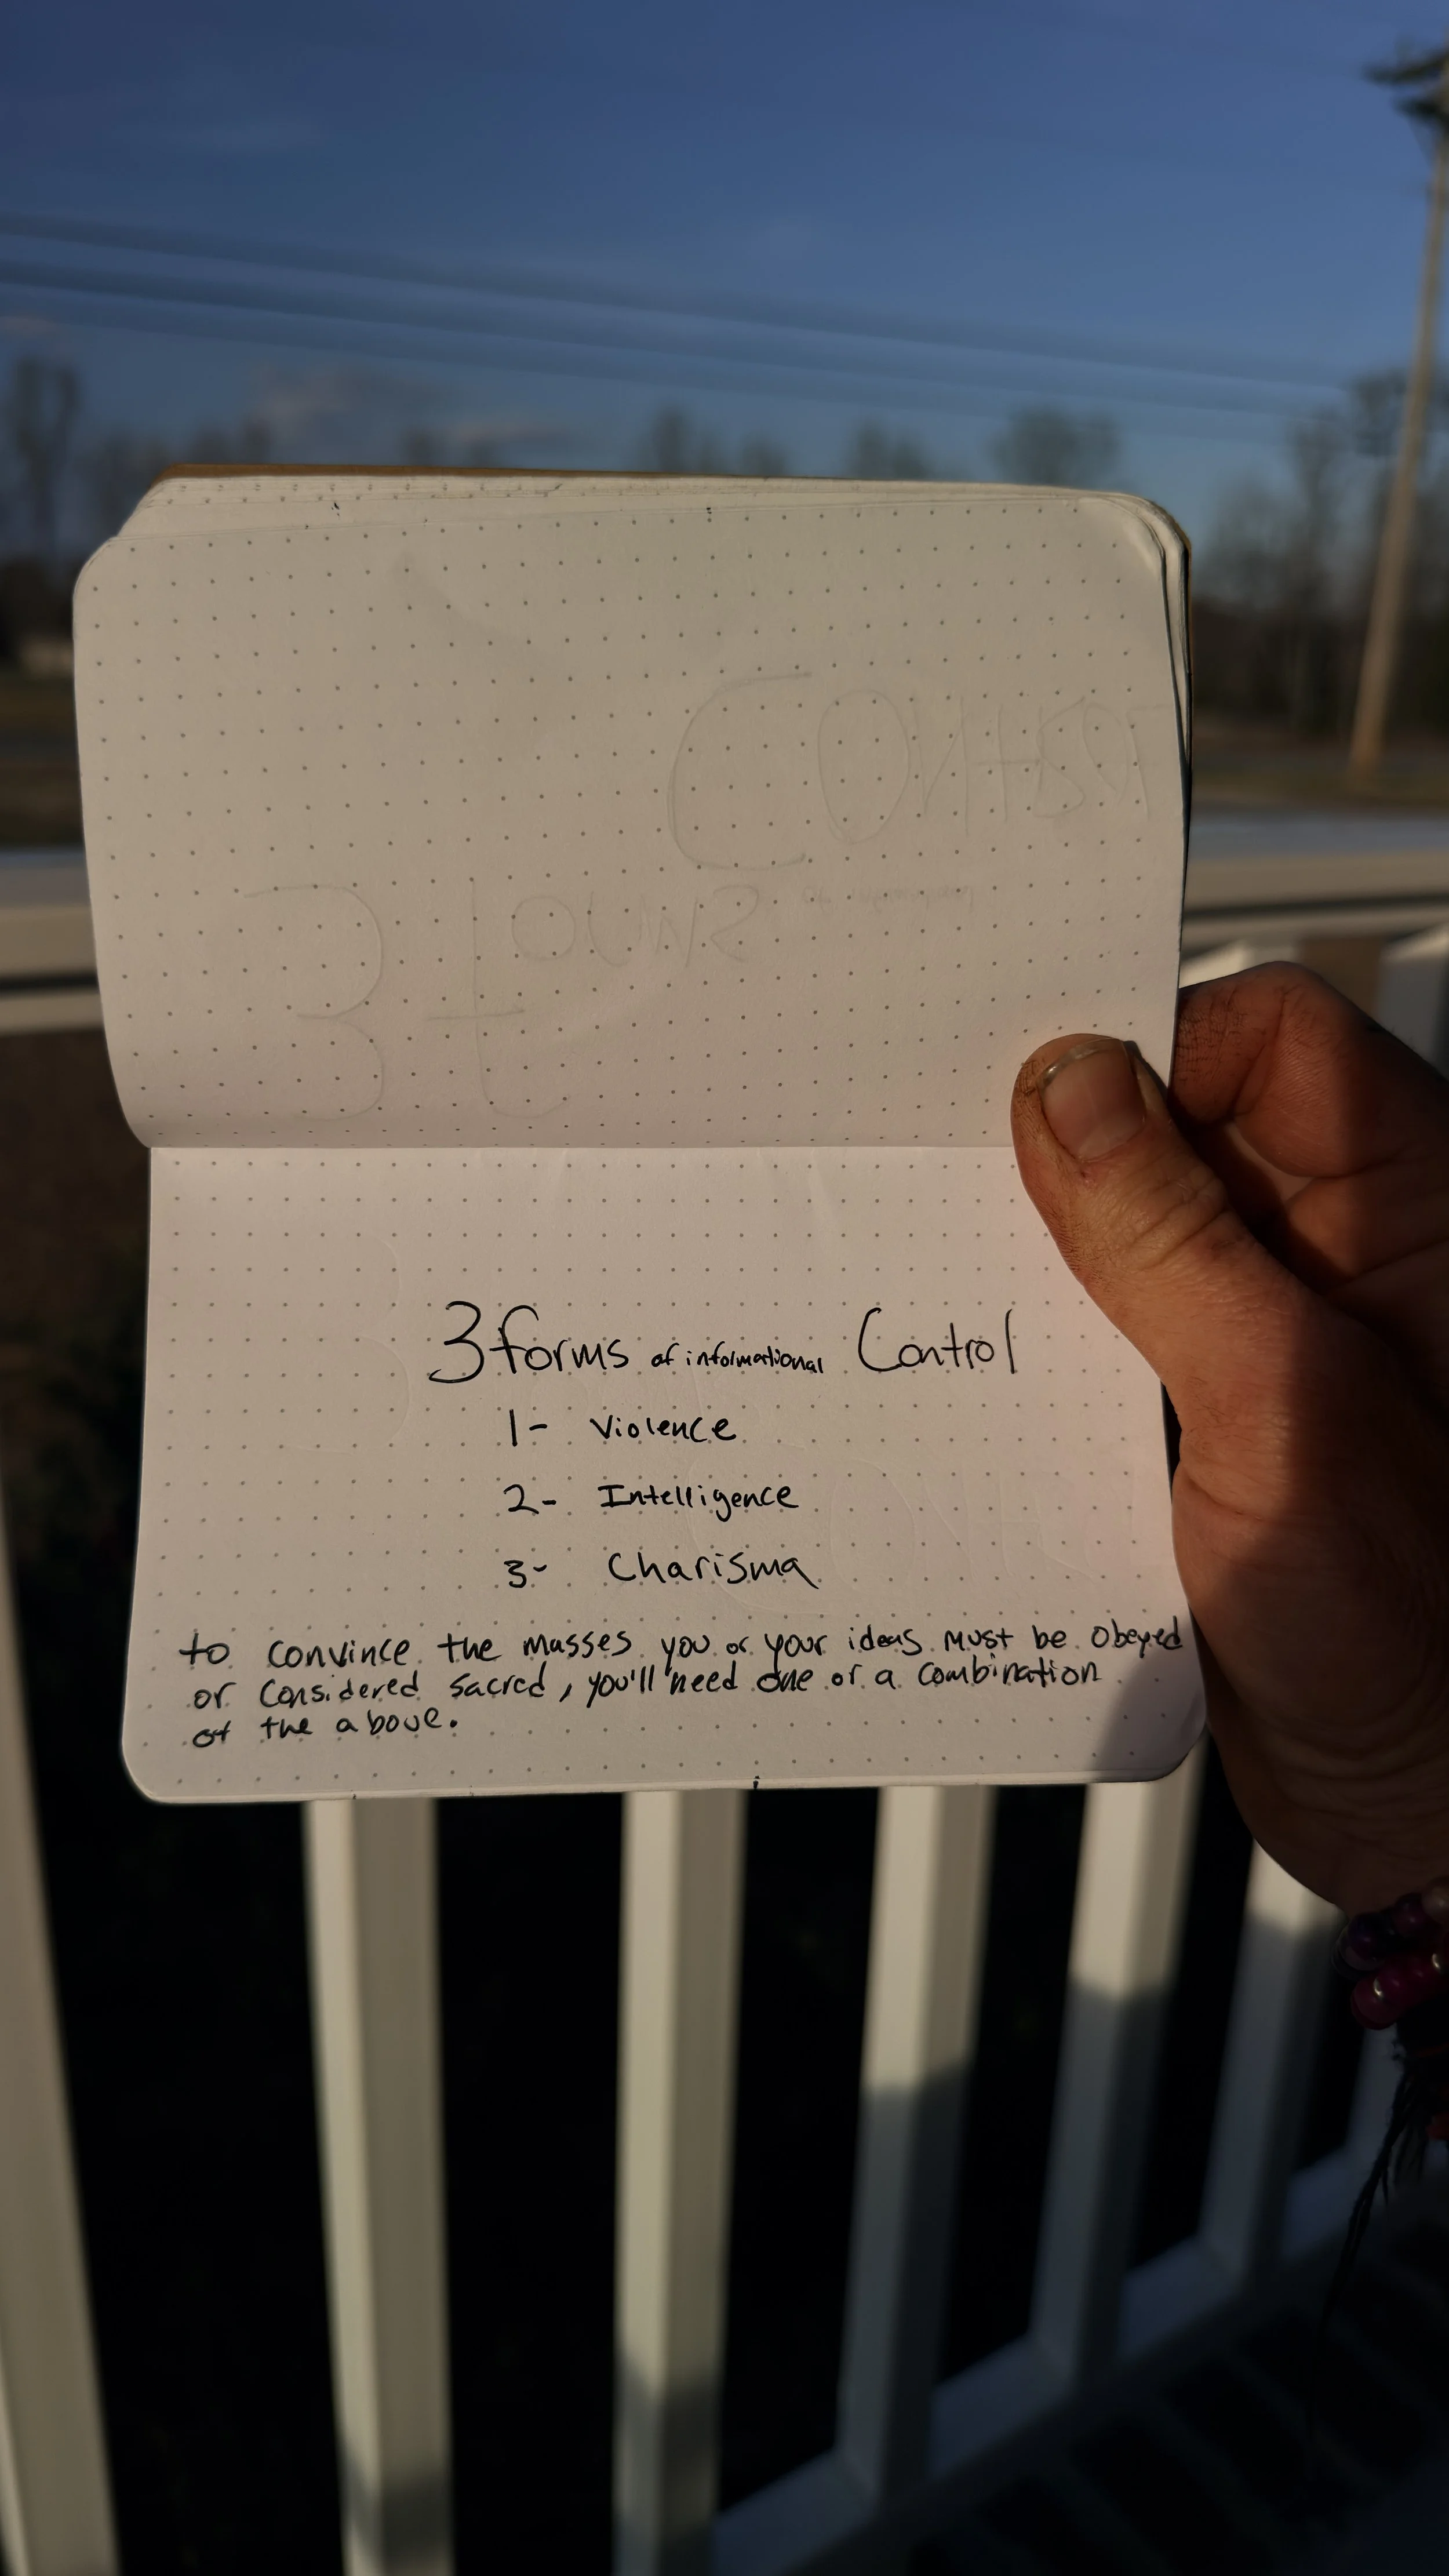 3 forms of informational Control
1- Violence
2- Intelligence
3- Charisma
to convince the masses you or your ideas must be obeyed
or considered sacred, you'll need one or a combination
of the above.